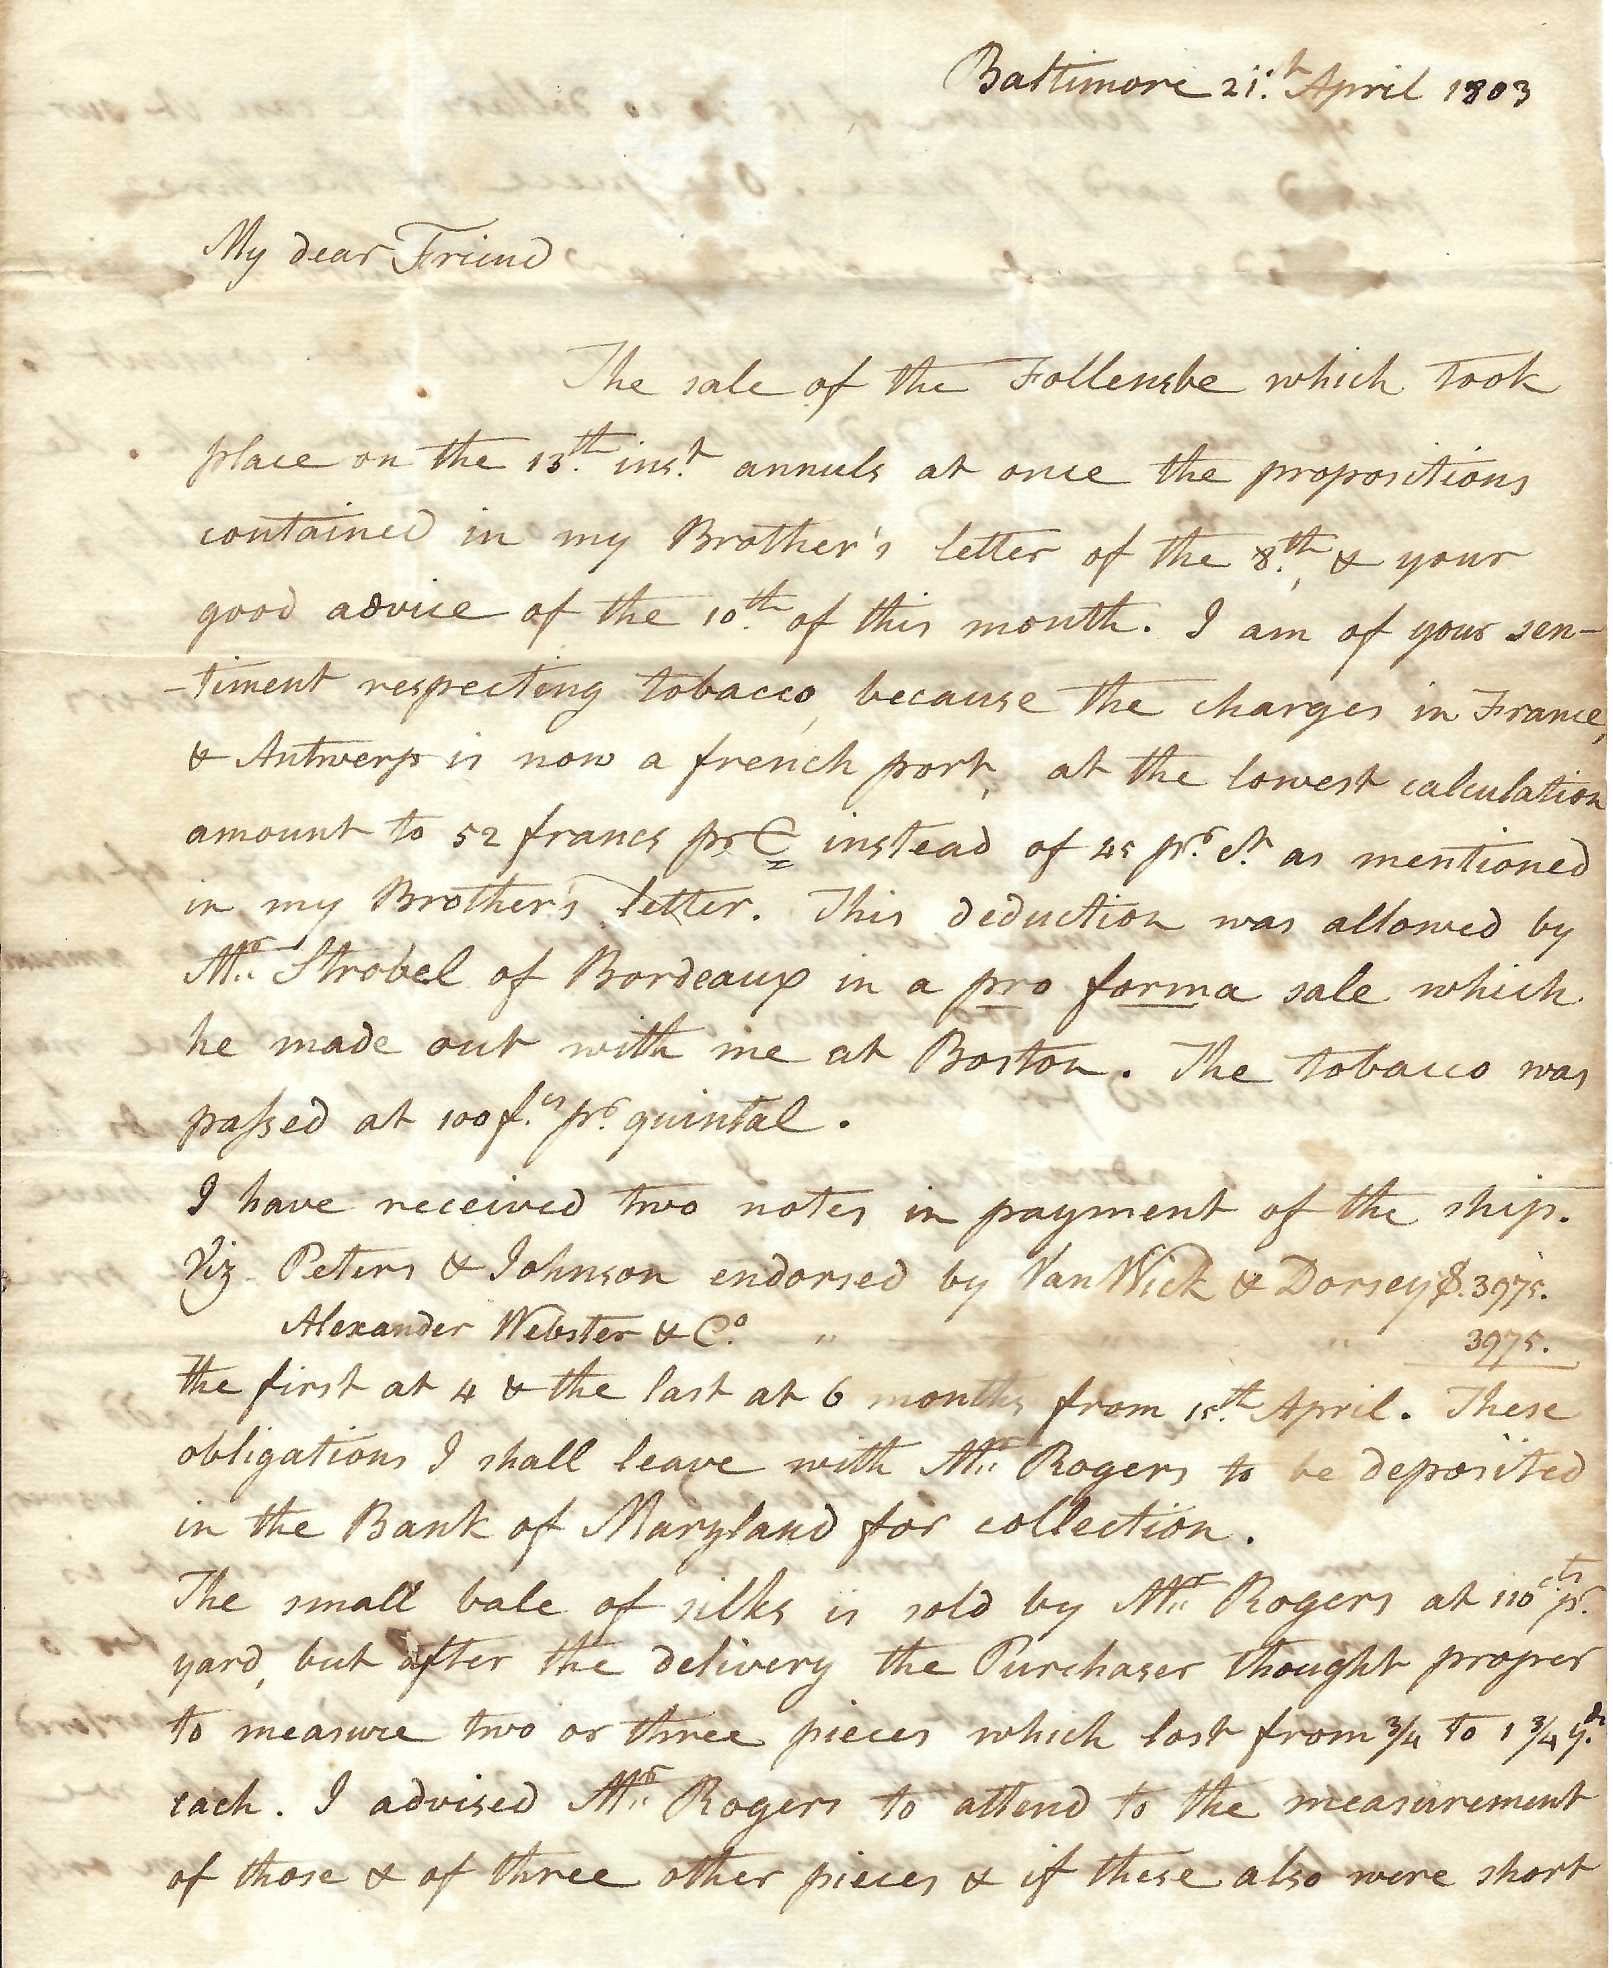 Baltimore 21.st April 1803
My dear Friend
The sale of the Follensbe which took
place on the 13.th ins.t annuls at once the propositions
contained in my Brother's letter of the 8.th, & your
good advice of the 10.th of this month. I am of your sen-
-timent respecting tobacco, because the charges in France,
& Antwerp is now a french port, at the lowest calculation
amount to 52 francs pr C instead of 45 pr. Ct. as mentioned
in my Brother's letter. This deduction was allowed by
Mr. Strobel of Bordeaux in a pro forma sale which
he made out with me at Boston. The tobacco was
passed at 100 f.cs pr. quintal.
I have received two notes in payment of the ship.
Viz Peters & Johnson endorsed by Van Wick & Dorsey $. 3975.
Alexander Webster & Co. " " 3975.
the first at 4 & the last at 6 months from 15.th April. These
obligations I shall leave with Mr. Rogers to be deposited
in the Bank of Maryland for collection.
The small bale of silks is sold by Mr. Rogers at 110 cts pr.
yard, but after the delivery the Purchaser thought proper
to measure two or three pieces which lost from 3/4 to 1 3/4 yds.
each. I advised Mr. Rogers to attend to the measurement
of those & of three other pieces & if these also were short